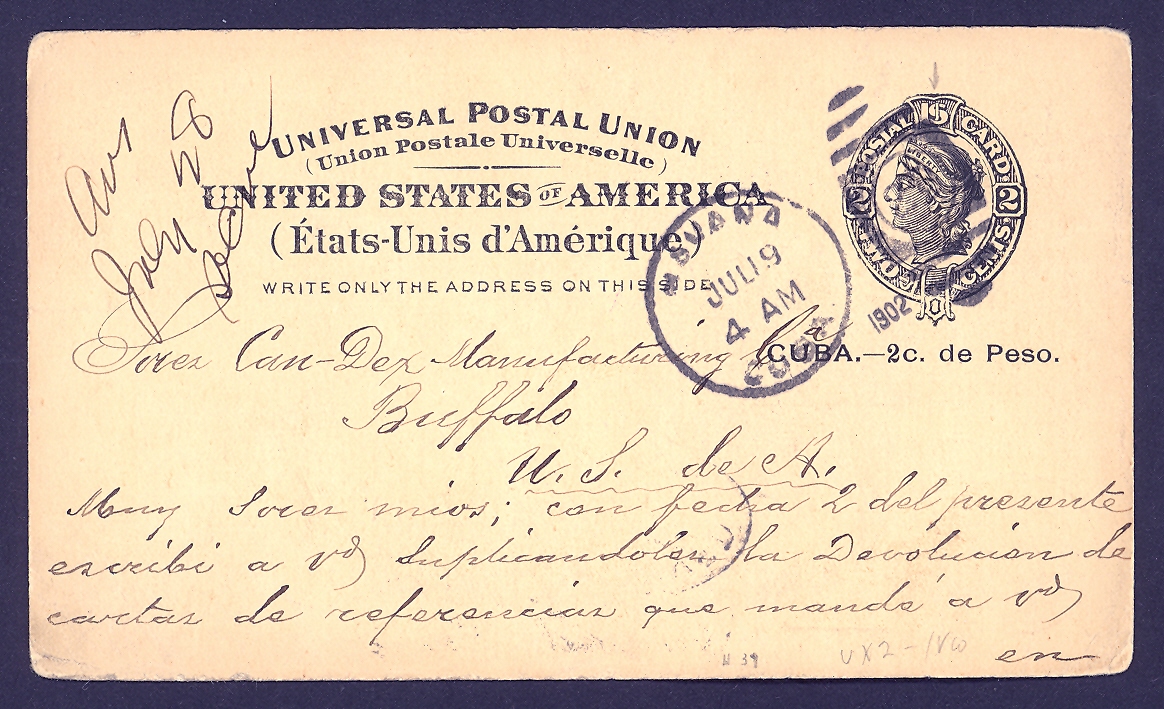 UNIVERSAL POSTAL UNION
(Union Postale Universelle)
UNITED STATES OF AMERICA
(États-Unis d'Amérique)
WRITE ONLY THE ADDRESS ON THIS SIDE
POSTAL CARD
2 2
CENTS
CUBA.—2c. de Peso.
HAVANA
JUL 19
4 AM
CUBA
1902
Ans
July 28
Sores Can-Dex Manufacturing Ca
Buffalo
U. S. de A.
Muy Sores mios; con fecha 2 del presente
escribi a Vd Suplicandoles la Devolucion de
cartas de referencias que mandé a Vd
en
N 39
UX2-